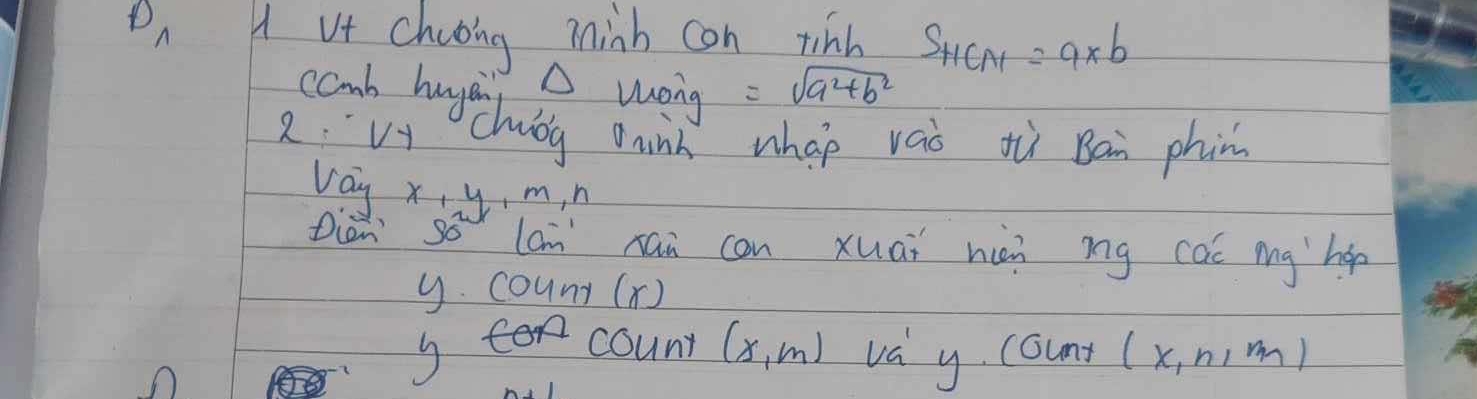 Đ1
1 Vt chương trình con tính SHCN = a x b
cạnh huyền Δ vuông = √a²+b²
2: Vt chương trình nhập vào từ Bàn phím
Vây x, y, m, n
Điền số lần xâu con xuất hiện trg các trg hợp
y. count (x)
y count (x, m) và y. count (x, n, m)
n+1